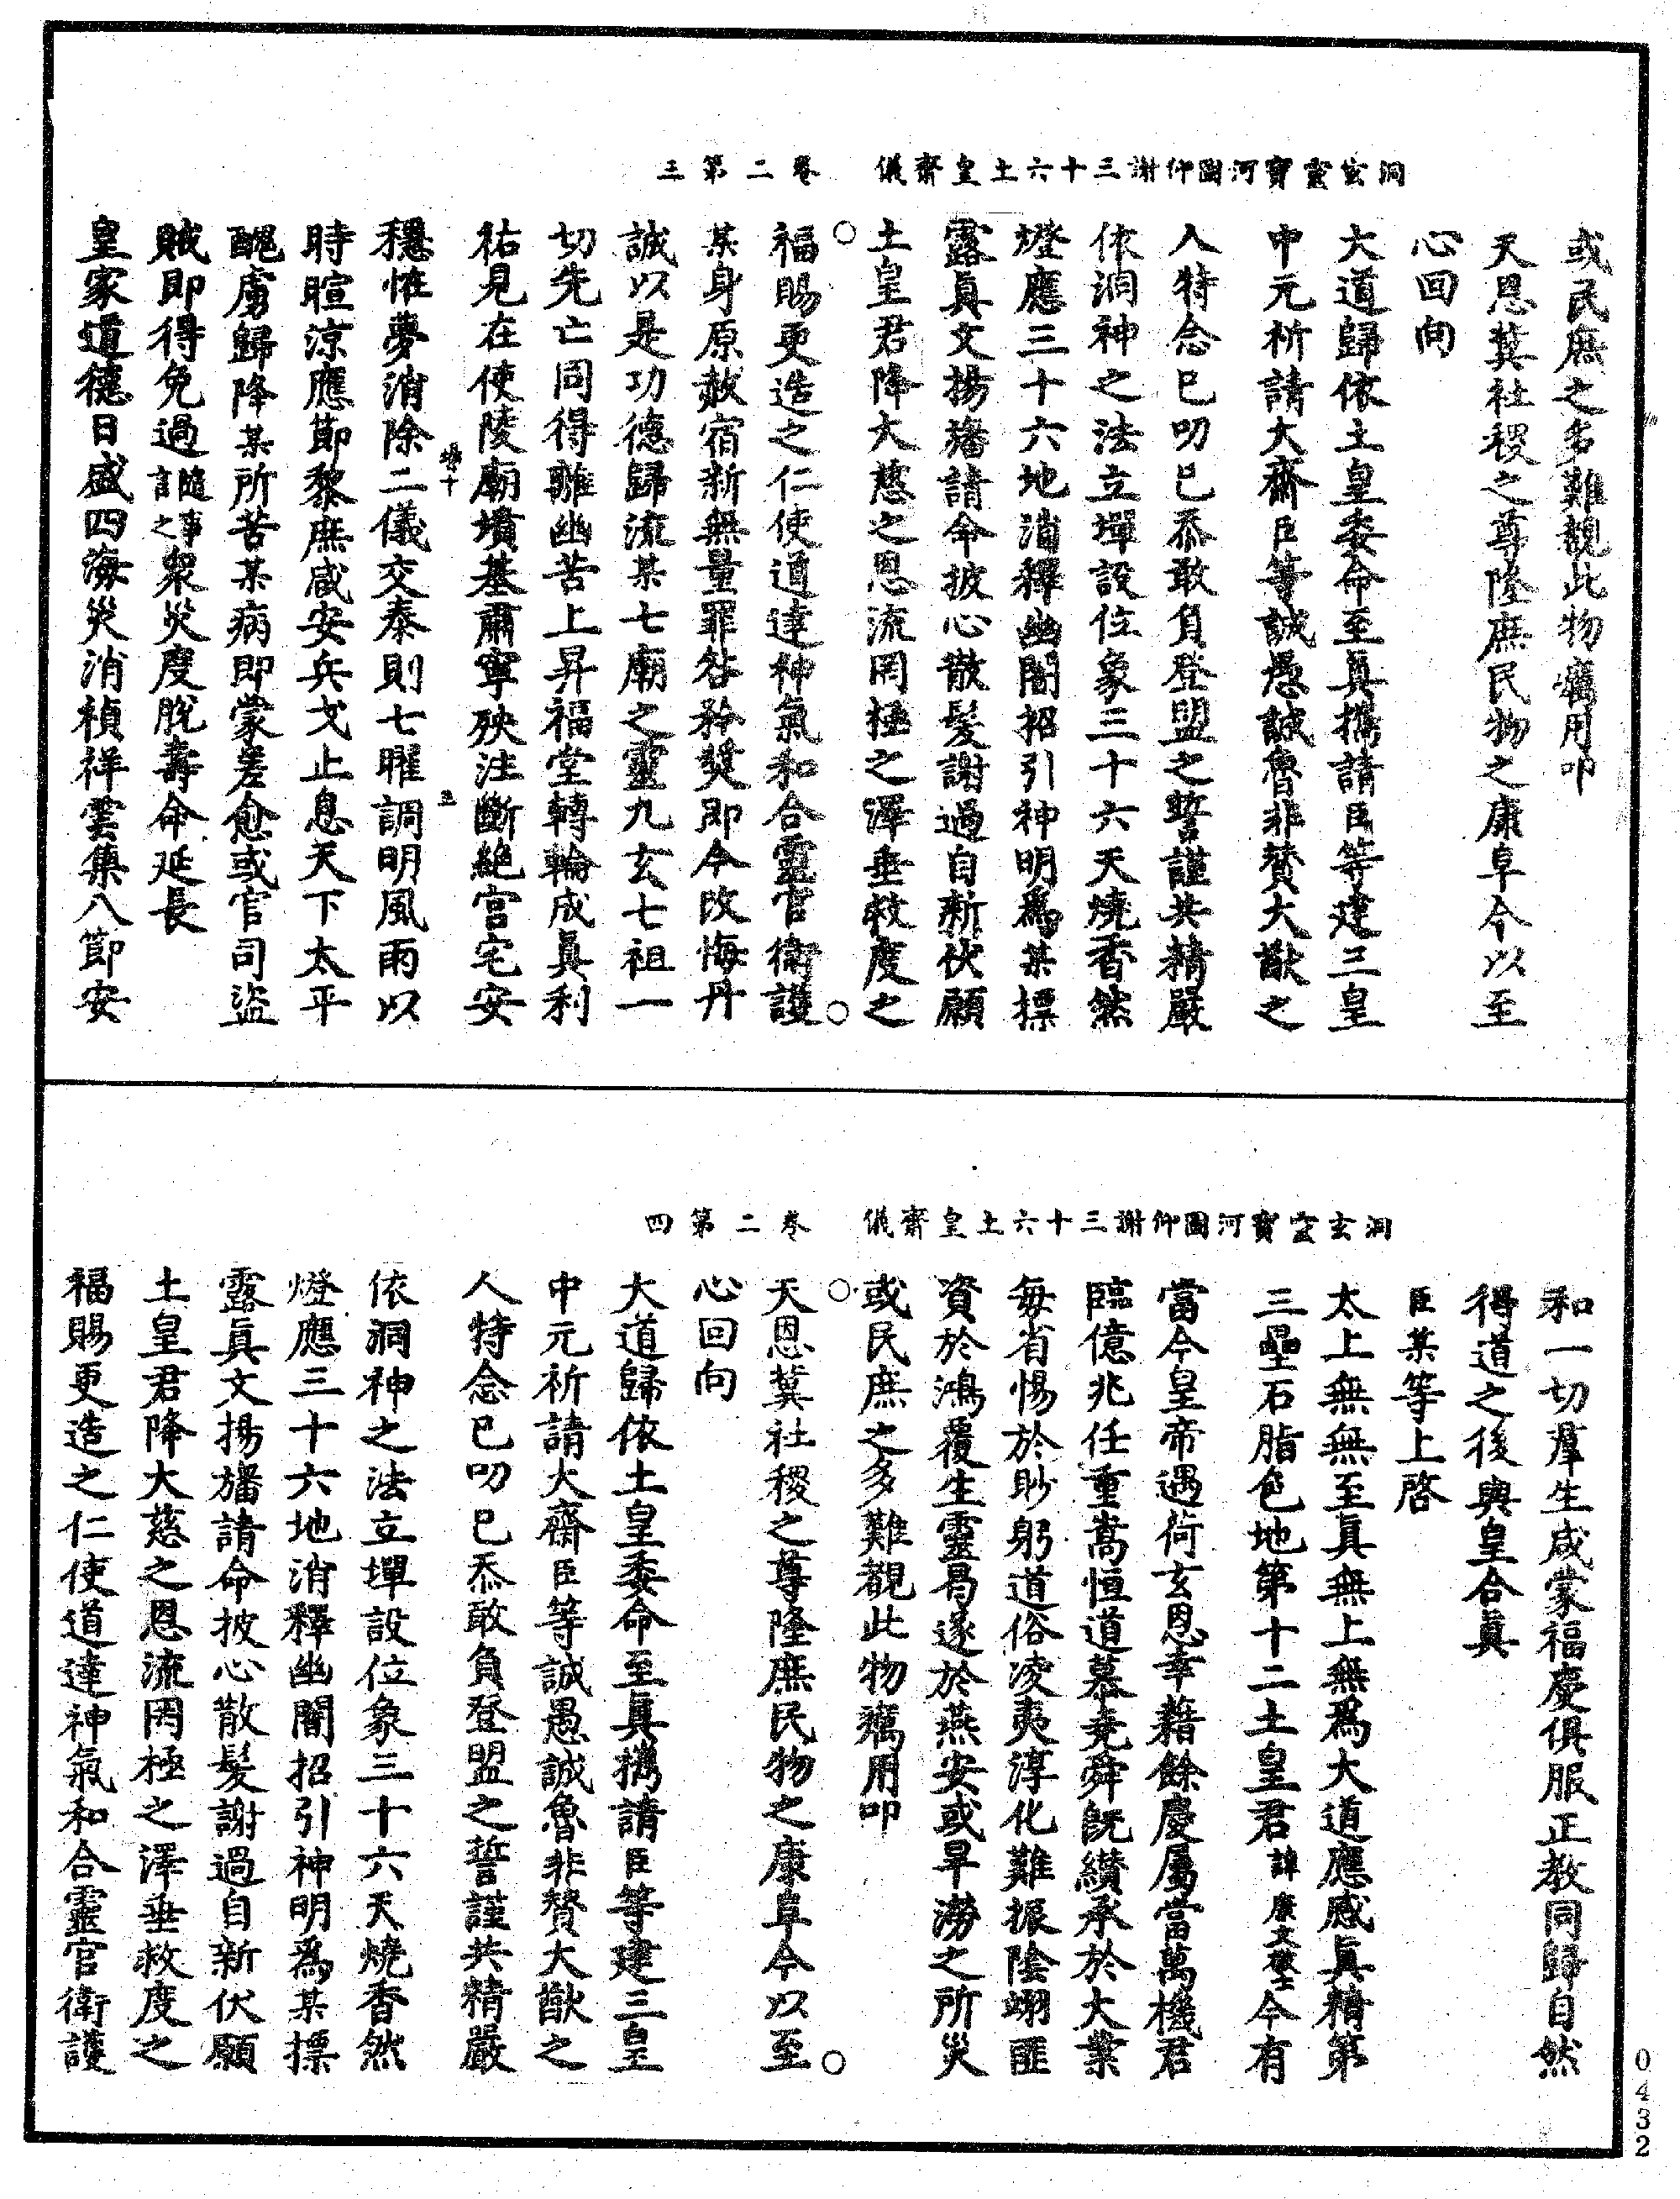 洞玄靈寶河圖仰謝三十六土皇齋儀　卷二第三
或民庶之多難覩此物癘用叩
天恩冀社稷之尊隆庶民物之康阜今以至
心回向
大道歸依土皇委命至真攜請臣等建三皇
中元祈請大齋臣等誠愚誠魯非贊大猷之
人特念已叨已忝敢負登盟之誓謹共精嚴
依洞神之法立墠設位象三十六天燒香然
燈應三十六地消釋幽闇招引神明爲某摽
露真文揚旛請命披心散髮謝過自新伏願
土皇君降大慈之恩流罔極之澤垂救度之
福賜更造之仁使道達神氣和合靈官衛護
某身原赦宿新無量罪咎矜奬即今改悔丹
誠以是功德歸流某七廟之靈九玄七祖一
切先亡同得離幽苦上昇福堂轉輪成真利
祐見在使陵廟墳基肅寧殃注斷絶宮宅安
穩恠夢消除二儀交泰則七曜調明風雨以
時暄涼應節黎庶咸安兵戈止息天下太平
醜虜歸降某所苦某病即蒙差愈或官司盜
賊即得免過隨事言之衆災度脫壽命延長
皇家道德日盛四海災消禎祥雲集八節安
洞玄靈寶河圖仰謝三十六土皇齋儀　卷二第四
和一切羣生咸蒙福慶俱服正教同歸自然
得道之後與皇合真
臣某等上啓
太上無無至真無上無爲大道應感真精第
三壘石脂色地第十二土皇君諱今有
當今皇帝遇荷玄恩幸藉餘慶屬當萬機君
臨億兆任重嵩恒道慕堯舜旣纘承於大業
每省惕於眇躬道俗凌夷淳化難振陰翊匪
資於鴻覆生靈曷遂於燕安或旱澇之所災
或民庶之多難覩此物癘用叩
天恩冀社稷之尊隆庶民物之康阜今以至
心回向
大道歸依土皇委命至真攜請臣等建三皇
中元祈請大齋臣等誠愚誠魯非贊大猷之
人特念已叨已忝敢負登盟之誓謹共精嚴
依洞神之法立墠設位象三十六天燒香然
燈應三十六地消釋幽闇招引神明爲某摽
露真文揚旛請命披心散髮謝過自新伏願
土皇君降大慈之恩流罔極之澤垂救度之
福賜更造之仁使道達神氣和合靈官衛護
0432